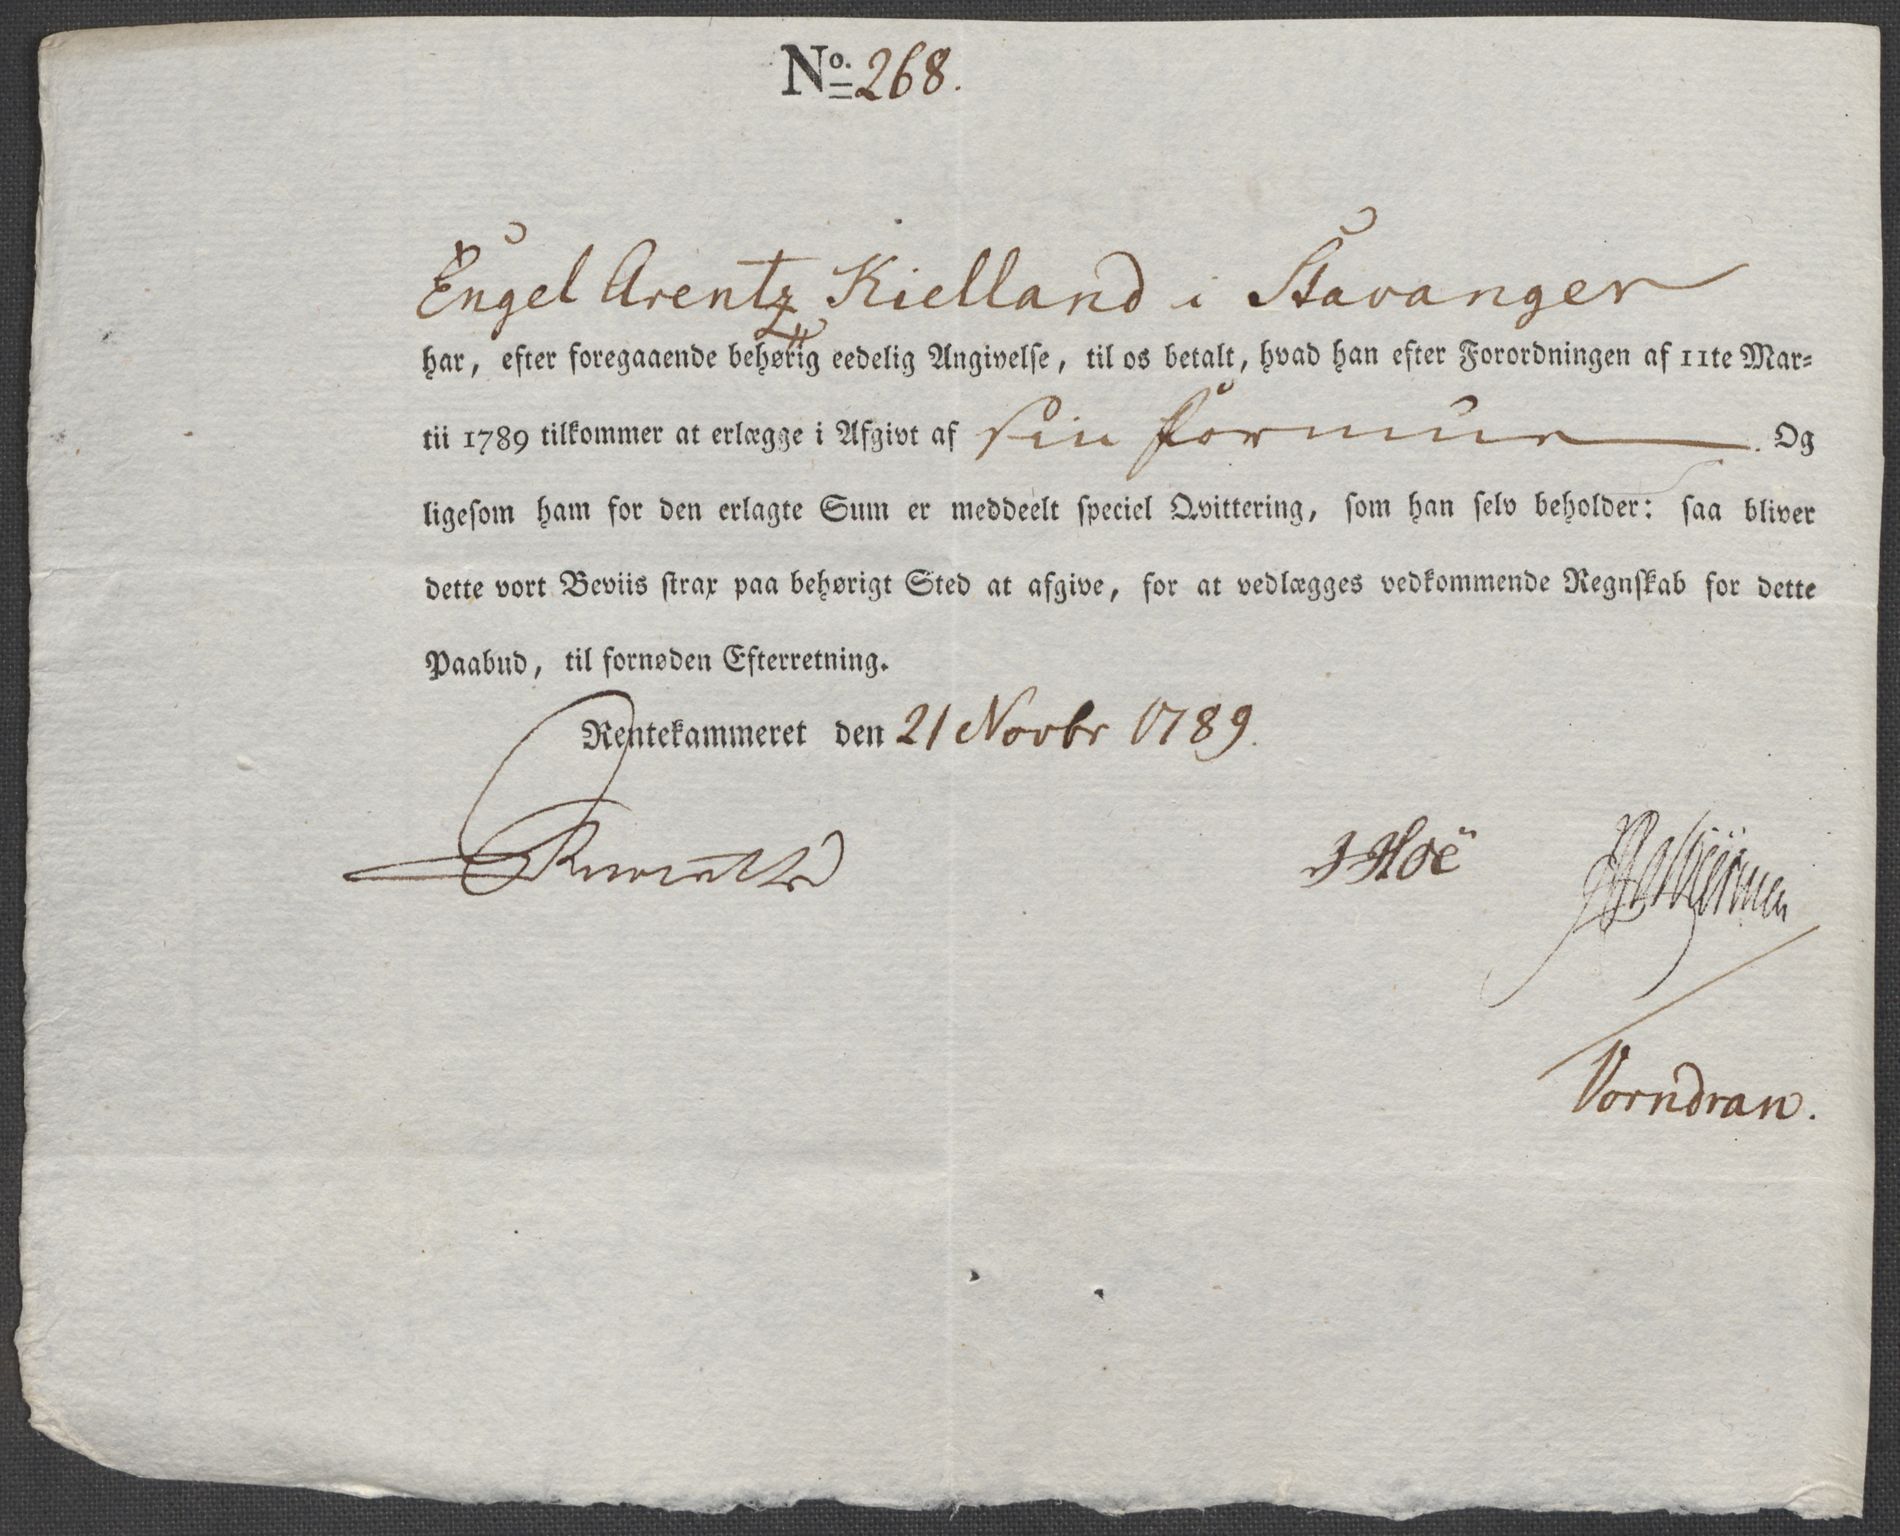 No. 268.
Engel Arentz Kielland i Stavanger
har, efter foregaaende behørig eedelig Angivelse, til os betalt, hvad han efter Forordningen af 11te Mar=
tii 1789 tilkommer at erlægge i Afgivt af sin formue. Og
ligesom ham for den erlagte Sum er meddeelt speciel Qvittering, som han selv beholder: saa bliver
dette vort Beviis strax paa behørigt Sted at afgive, for at vedlægges vedkommende Regnskab for dette
Paabud, til fornøden Efterretning.
Rentekammeret den 21 Novbr 1789.
Hoë
Vorndran.